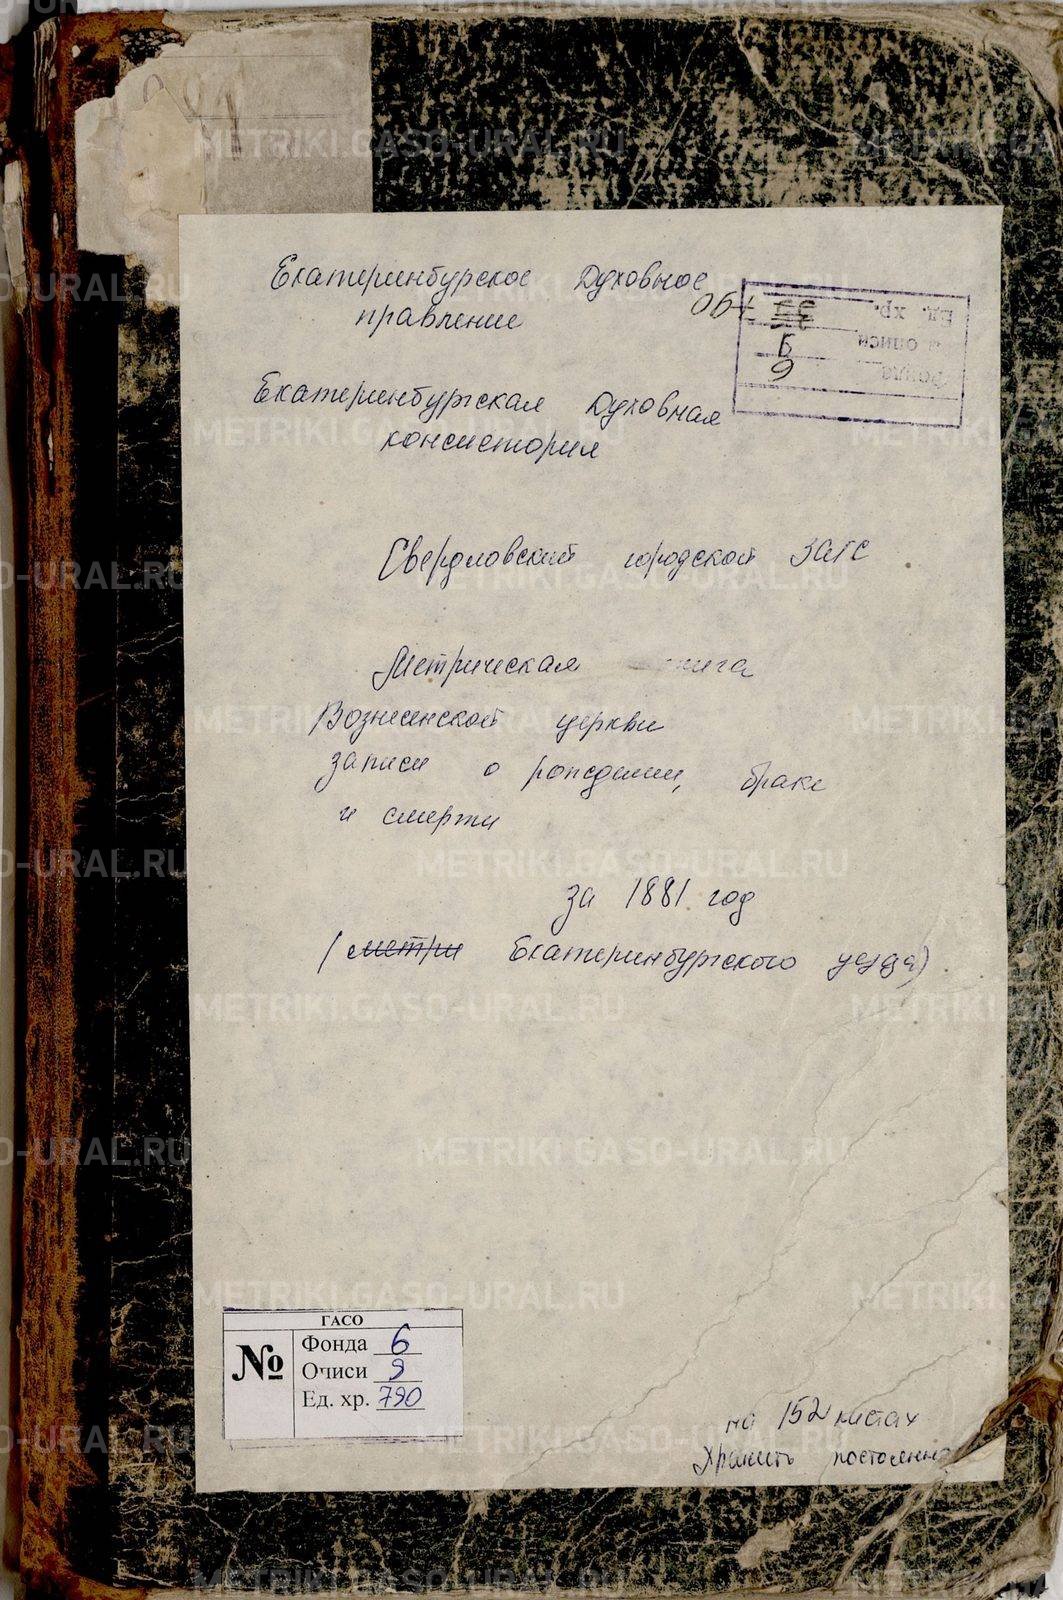 Екатеринбурское Духовное
правление
Екатеринбургская Духовная
консистория
Свердловский городской ЗАГС
Метрическая книга
Вознесенской церкви
записи о рождении, браке
и смерти
за 1881 год
(метри Екатеринбургского уезда)
Фонда 6
описи 9
Ед. хр. 790
ГАСО
№
Фонда 6
Описи 9
Ед. хр. 790
на 152 листах
Хранить постоянно
METRIKI.GASO-URAL.RU